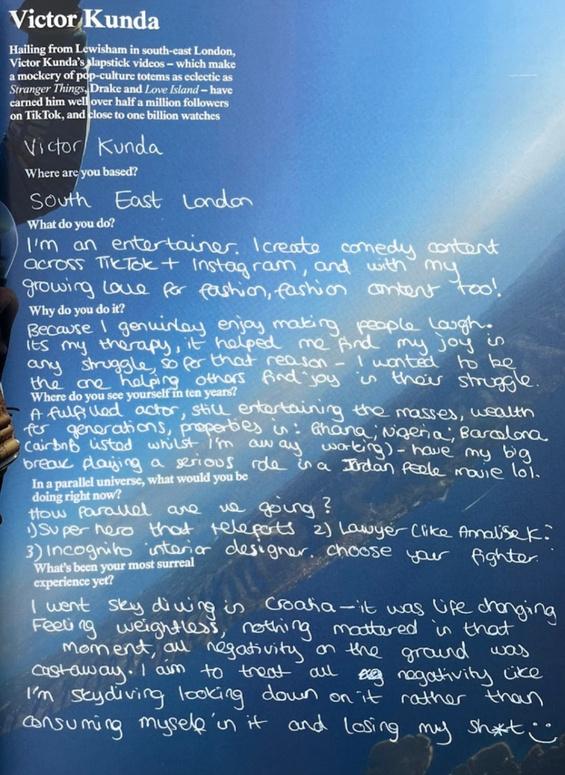 Victor Kunda
Hailing from Lewisham in south-east London,
Victor Kunda's slapstick videos – which make
a mockery of pop-culture totems as eclectic as
Stranger Things, Drake and Love Island – have
earned him well over half a million followers
on TikTok, and close to one billion watches
Victor Kunda
Where are you based?
South East London
What do you do?
I'm an entertainer. I create comedy content
across TikTok + Instagram, and with my
growing love for fashion, fashion content too!
Why do you do it?
Because I genuinley enjoy making people laugh.
Its my therapy, it helped me find my joy in
any struggle, so for that reason – I wanted to be
the one helping others find joy in their struggle.
Where do you see yourself in ten years?
A fulfilled actor, still entertaining the masses, wealth
for generations, properties in: Ghana, Nigeria, Barcelona
(airbnb listed whilst I'm away working) – have my big
break playing a serious role in a Jordan Peele movie lol.
In a parallel universe, what would you be
doing right now?
How Parallel are we going?
1) Super hero that teleports 2) Lawyer (like Annalise K.)
3) Incognito interior designer. choose your fighter.
What's been your most surreal
experience yet?
I went sky diving in Croatia – it was life changing
Feeling weightless, nothing mattered in that
moment, all negativity on the ground was
castaway. I aim to treat all negativity like
I'm skydiving looking down on it rather than
consuming myself in it and losing my sh*t :)